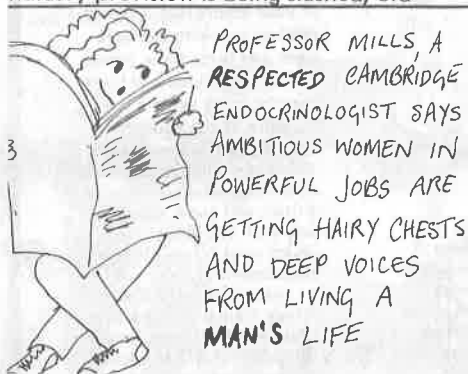 PROFESSOR MILLS, A
RESPECTED CAMBRIDGE
ENDOCRINOLOGIST SAYS
AMBITIOUS WOMEN IN
POWERFUL JOBS ARE
GETTING HAIRY CHESTS
AND DEEP VOICES
FROM LIVING A
MAN'S LIFE